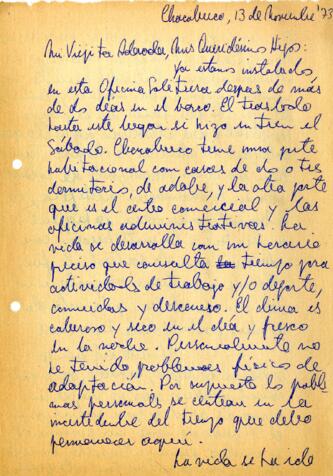 Chacabuco, 13 de Noviembre '73
Mi Viejita Adorada, Mis Queridísimos Hijos:
Ya estamos instalados
en esta Oficina Salitrera despues de más
de dos días en el barco. El traslado
hasta este lugar se hizo en tren el
Sábado. Chacabuco tiene una parte
habitacional con casas de dos o tres
dormitorios, de adobe, y la otra parte
que es el centro comercial y las
oficinas administrativas. La
vida se desarrolla con un horario
preciso que consulta tiempo para
actividades de trabajo y/o deporte,
comidas y descanso. El clima es
caluroso y seco en el día y fresco
en la noche. Personalmente no
he tenido problemas físicos de
adaptación. Por supuesto los proble
mas personales se centran en la
incertidumbre del tiempo que debo
permanecer aquí.
La vida se ha ido